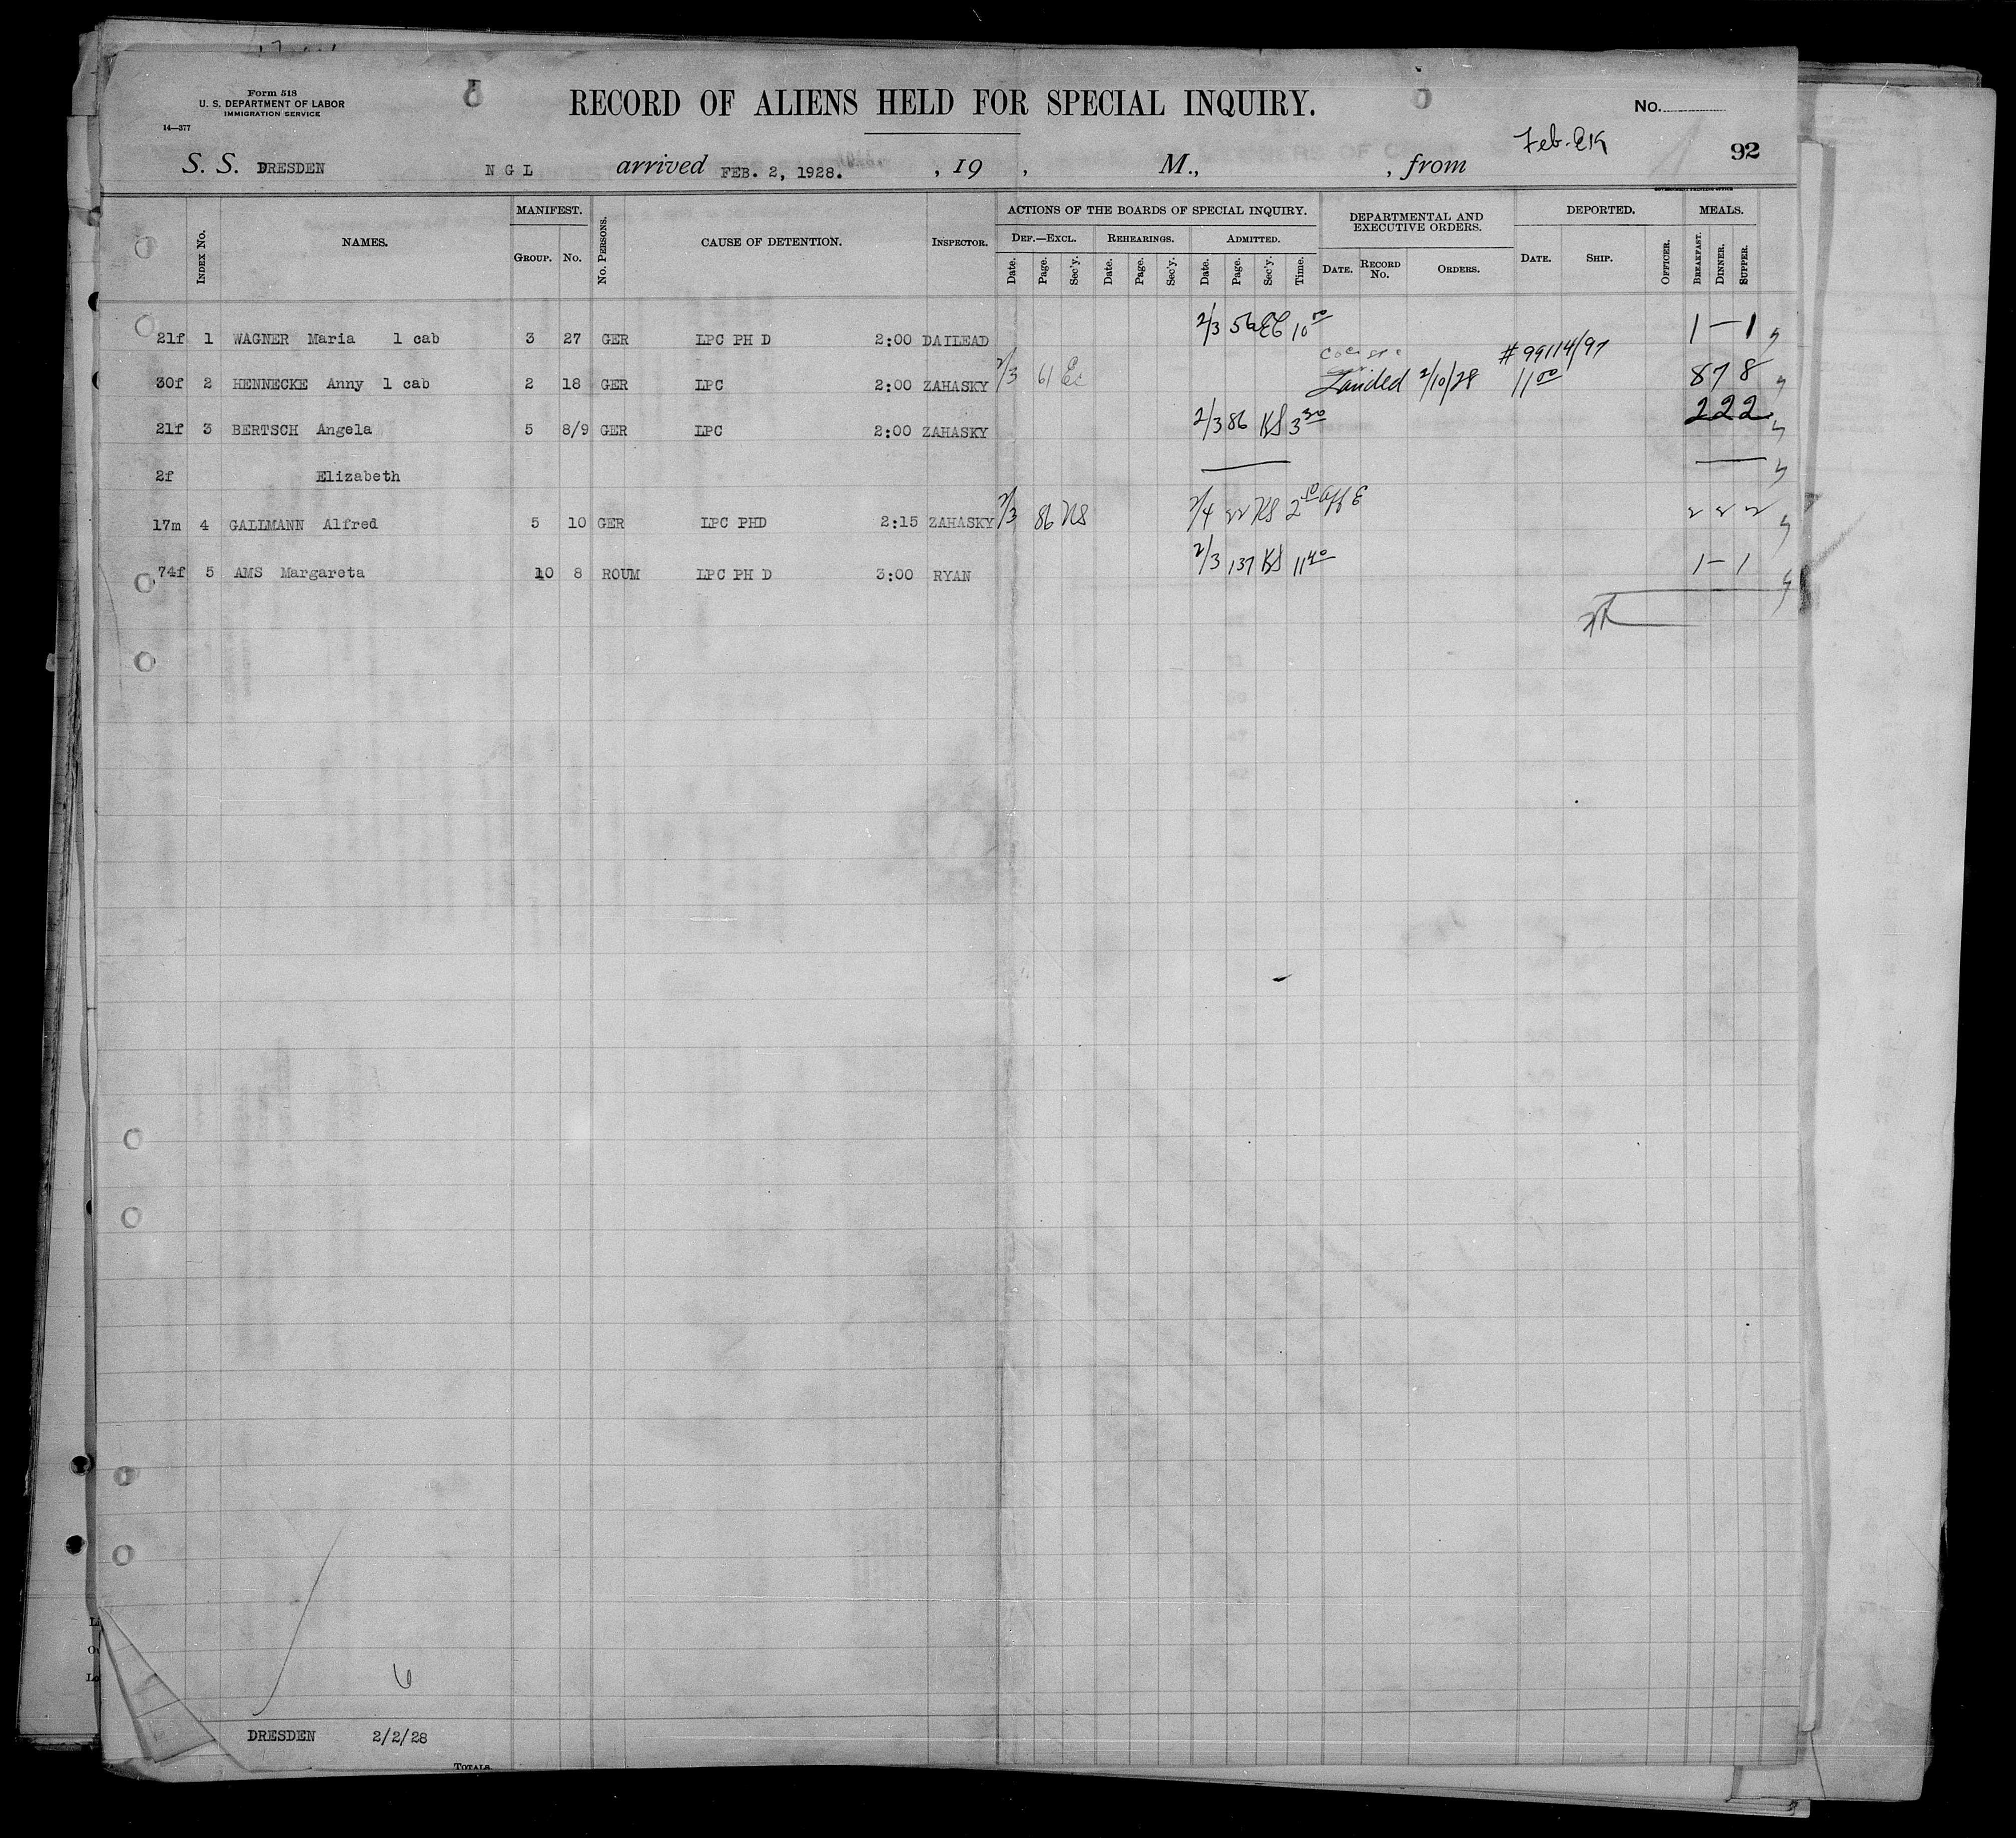 Form 518
U. S. DEPARTMENT OF LABOR
IMMIGRATION SERVICE
14—377
RECORD OF ALIENS HELD FOR SPECIAL INQUIRY.
No.
Feb-EK
92
S. S. DRESDEN N G L arrived FEB. 2, 1928. , 19 , M., , from
GOVERNMENT PRINTING OFFICE
INDEX No. NAMES. MANIFEST. GROUP. No. No. PERSONS. CAUSE OF DETENTION. INSPECTOR. ACTIONS OF THE BOARDS OF SPECIAL INQUIRY. DEPARTMENTAL AND EXECUTIVE ORDERS. DEPORTED. MEALS.
DEF.—EXCL. REHEARINGS. ADMITTED.
Date. Page. Sec'y. Date. Page. Sec'y. Date. Page. Sec'y. Time. DATE. RECORD No. ORDERS. DATE. SHIP. OFFICER. BREAKFAST. DINNER. SUPPER.
21f 1 WAGNER Maria 1 cab 3 27 GER LPC PH D 2:00 DAILEAD 2/3 56 EC 10 00 1 — 1
# 99114/97
30f 2 HENNECKE Anny 1 cab 2 18 GER LPC 2:00 ZAHASKY 2/3 61 EC Landed 2/10/28 11 00 8 7 8
21f 3 BERTSCH Angela 5 8/9 GER LPC 2:00 ZAHASKY 2/3 86 KS 3 30 2 2 2
2f Elizabeth
17m 4 GALLMANN Alfred 5 10 GER LPC PHD 2:15 ZAHASKY 2/3 86 KS 2/4 KS 2 50 2 2 2
74f 5 AMS Margareta 10 8 ROUM LPC PH D 3:00 RYAN 2/3 137 KS 11 40 1 — 1
6
DRESDEN 2/2/28
TOTALS